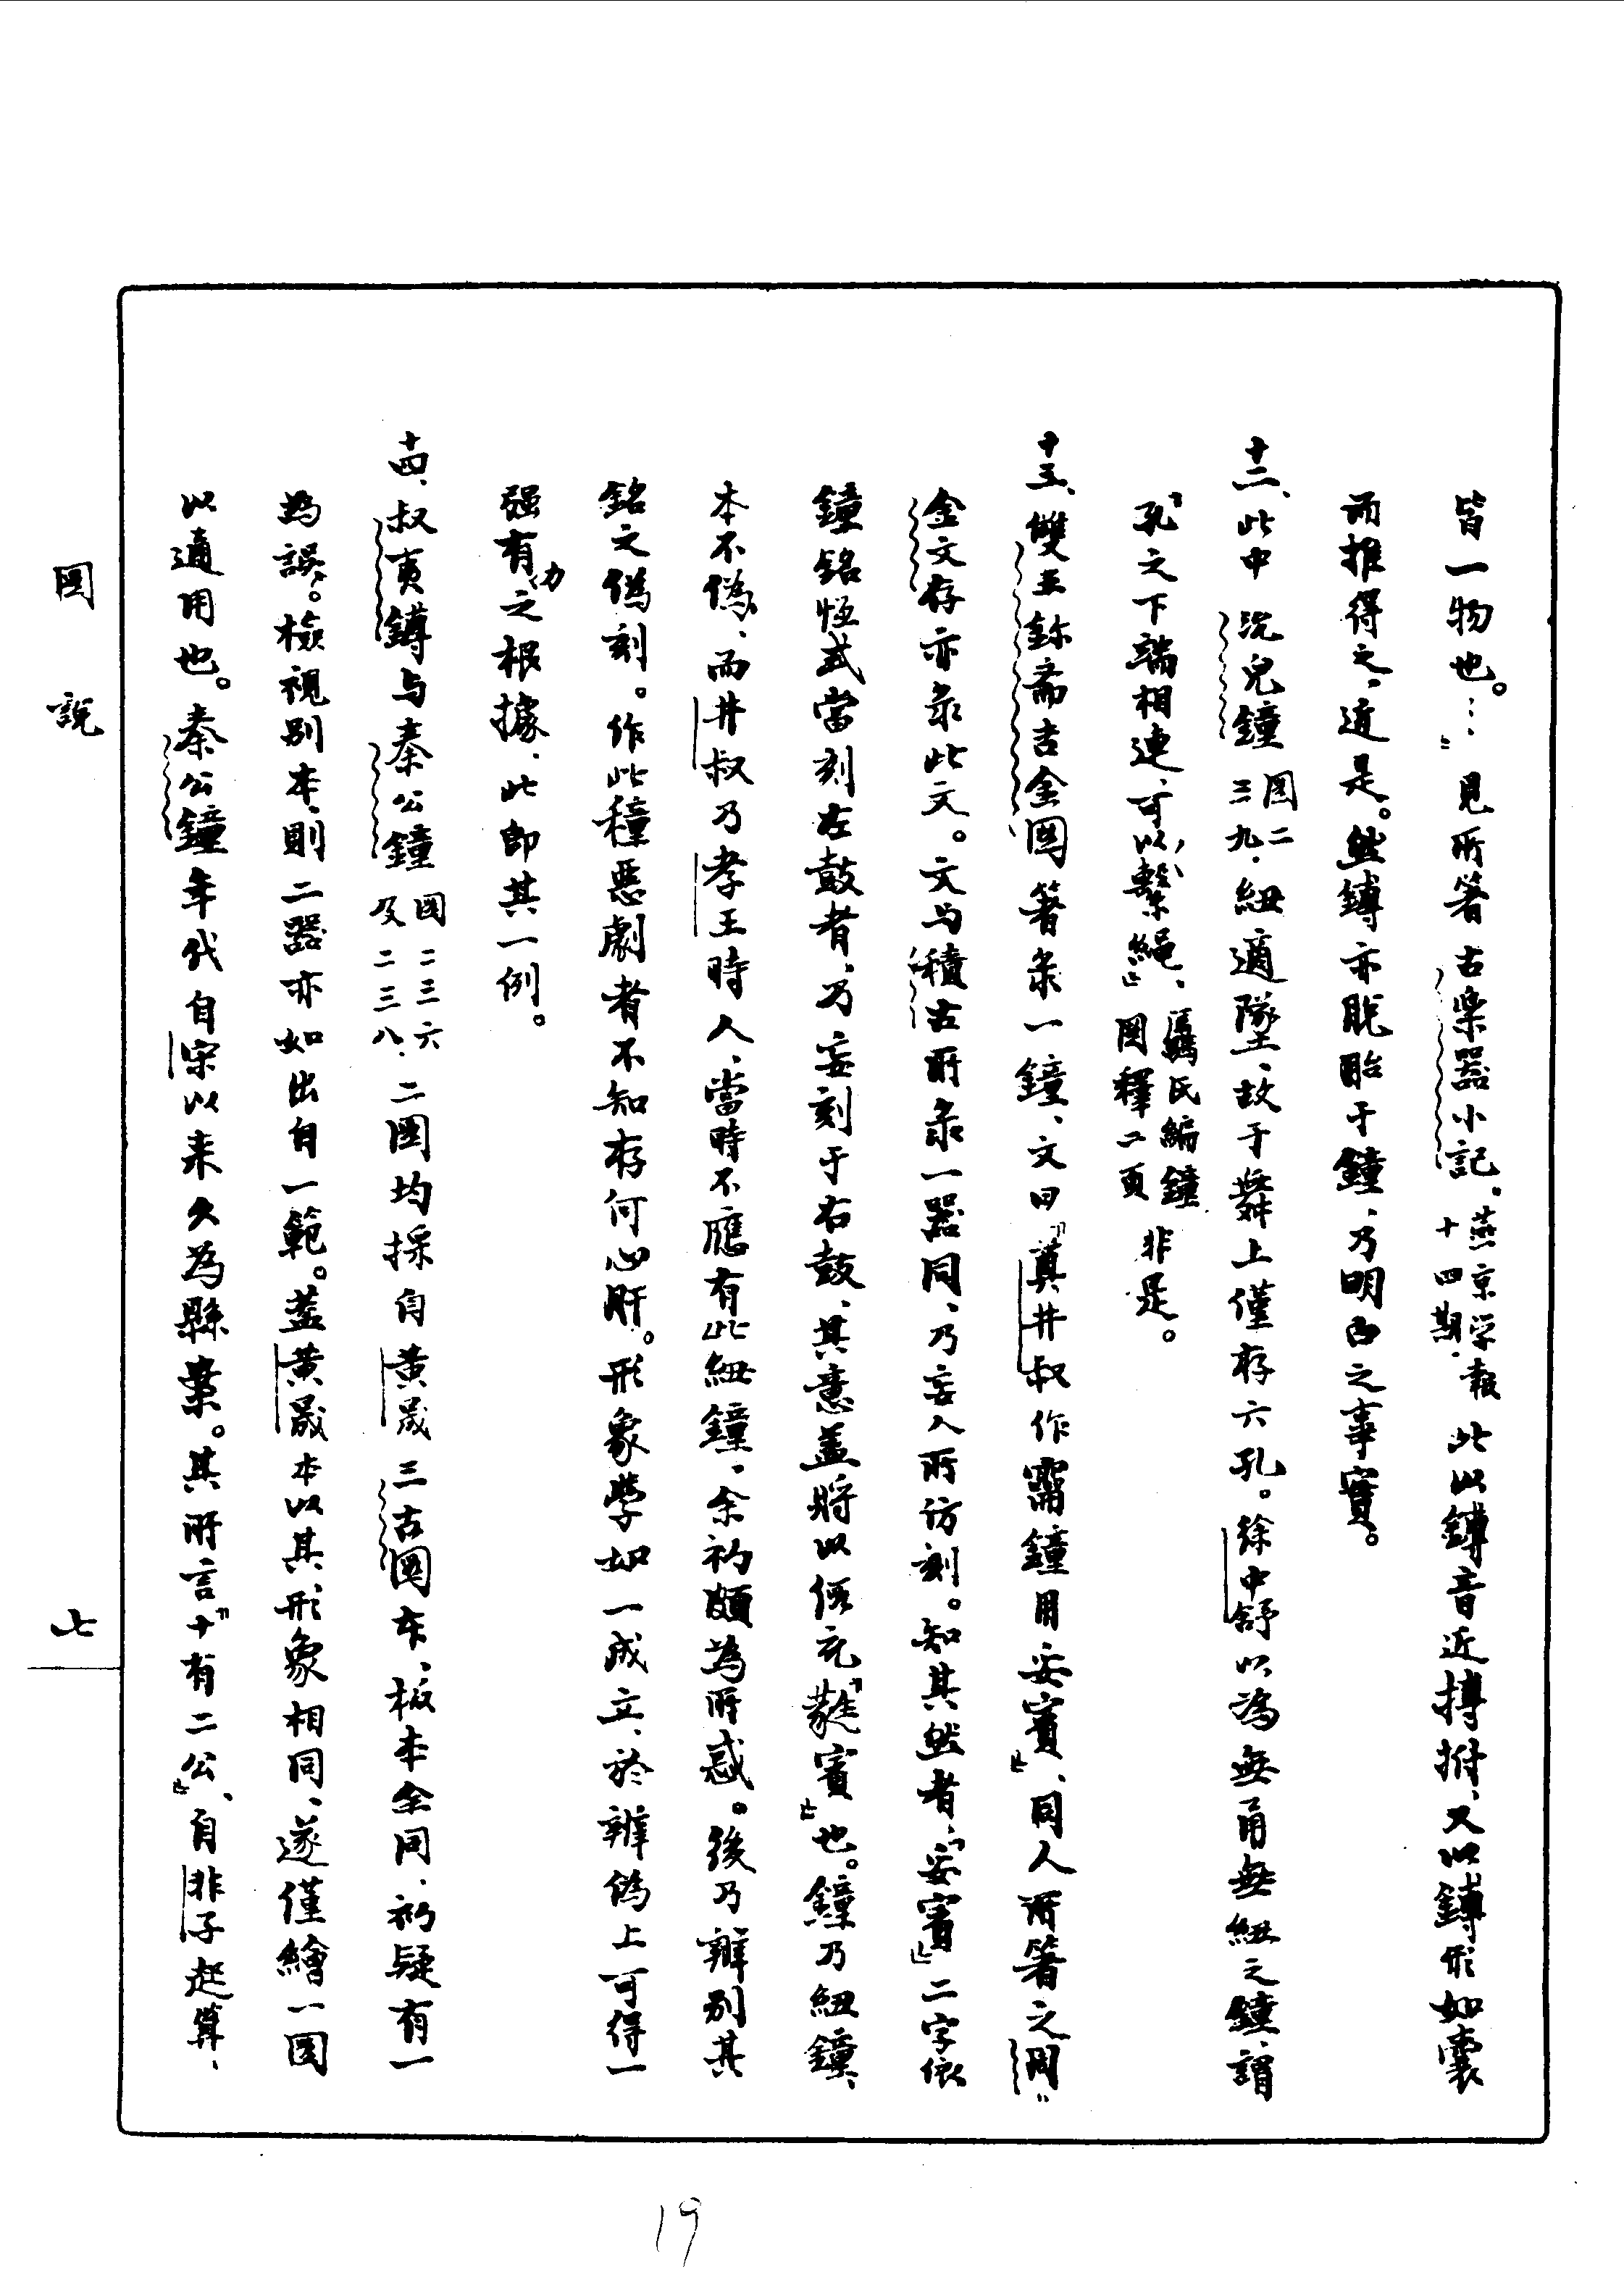 皆一物也。…」見所著古樂器小記。燕京学報十四期．此以鎛音近搏拊、又以鎛形如囊
而推得之、近是。然鎛亦脫胎于鐘、乃明白之事實。
十二、此中沇兒鐘图二三九．紐適墜、故于舞上僅存六孔。徐中舒以為無甬無紐之鐘、謂
「孔之下端相連、可以繫繩」、䣄氏編鐘图釋二頁非是。
十三、雙王鉨斋吉金图箸彔一鐘、文曰「奠井叔作霝鐘用妥賓」、同人所箸之周
金文存亦彔此文。文与積古所彔一器同、乃妄人所仿刻。知其然者、「妥賓」二字依
鐘銘恆式當刻左鼓者、乃妄刻于右鼓、其意盖將以傅元「蕤賓」也。鐘乃紐鐘、
本不偽、而井叔乃孝王時人、當時不應有此紐鐘、余初頗為所惑。後乃辨別其
銘之偽刻。作此種惡劇者不知存何心肝。形象學如一成立、於辨偽上可得一
强有力之根據、此即其一例。
十四、叔夷鎛与秦公鐘图二三六及二三八．二图均採自黄晟三古图本、板本全同、初疑有一
為誤。檢視别本、則二器亦如出自一範。盖黄晟本以其形象相同、遂僅繪一图
以適用也。秦公鐘年代自宋以来久為縣案。其所言「十有二公」、自非子起算、
图說
七
19